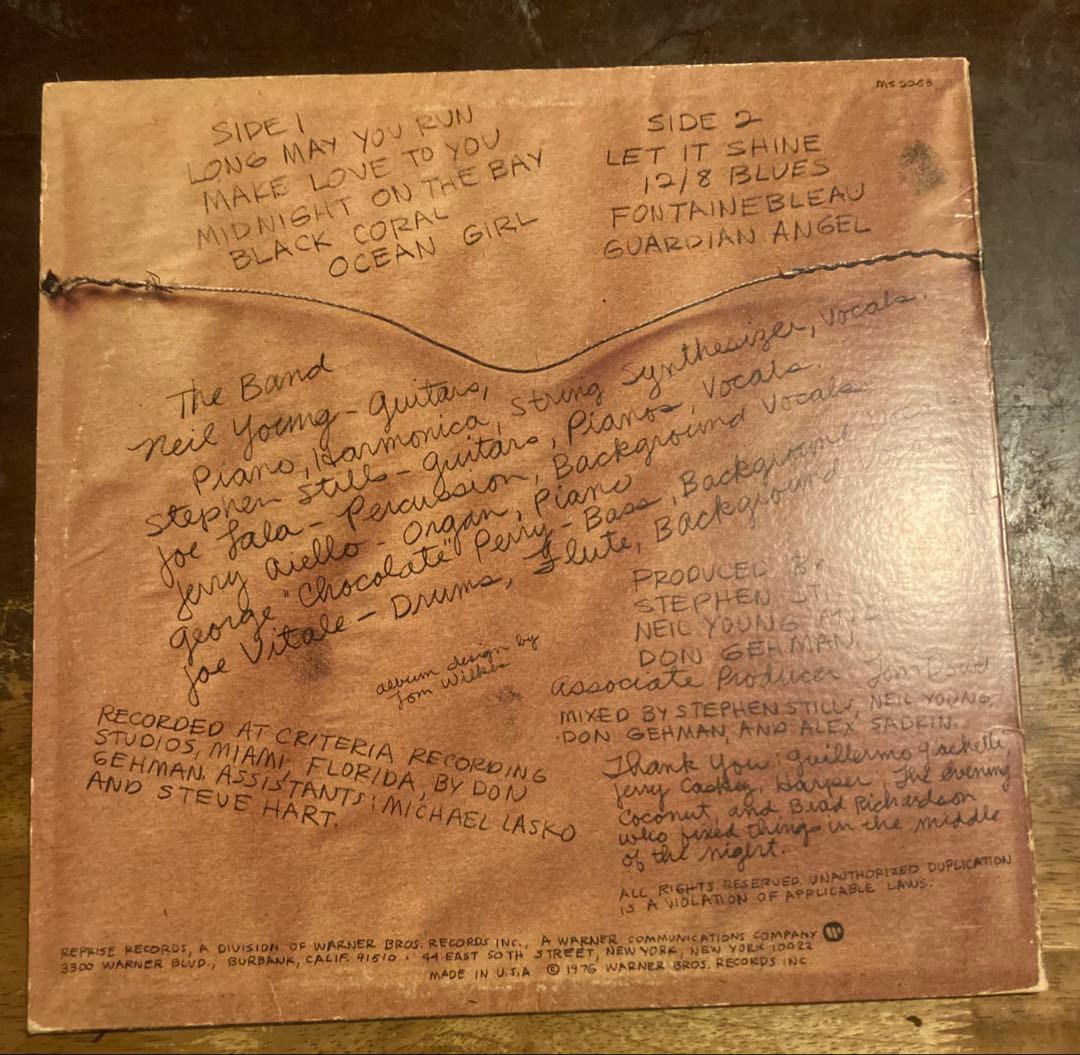 MS 2253
SIDE 1
LONG MAY YOU RUN
MAKE LOVE TO YOU
MIDNIGHT ON THE BAY
BLACK CORAL
OCEAN GIRL
SIDE 2
LET IT SHINE
12/8 BLUES
FONTAINEBLEAU
GUARDIAN ANGEL
The Band
Neil Young - Guitars,
Piano, Harmonica, String Synthesizer, Vocals.
Stephen Stills - Guitars, Pianos, Vocals.
Joe Lala - Percussion, Background Vocals.
Jerry Aiello - Organ, Piano
George "Chocolate" Perry - Bass, Background Vocals
Joe Vitale - Drums, Flute, Background Vocals
album design by
Tom Wilkes
PRODUCED BY
STEPHEN
NEIL YOUNG AND
DON GEHMAN.
Associate Producer Tom Dowd
MIXED BY STEPHEN STILLS, NEIL YOUNG,
DON GEHMAN, AND ALEX SADKIN.
RECORDED AT CRITERIA RECORDING
STUDIOS, MIAMI, FLORIDA, BY DON
GEHMAN. ASSISTANTS: MICHAEL LASKO
AND STEVE HART.
Thank You: Guillermo Giachetti,
Jerry Caskey, Harper, The Evening
Coconut, and Brad Richardson
who fixed things in the middle
of the night.
ALL RIGHTS RESERVED. UNAUTHORIZED DUPLICATION
IS A VIOLATION OF APPLICABLE LAWS.
REPRISE RECORDS, A DIVISION OF WARNER BROS. RECORDS INC., A WARNER COMMUNICATIONS COMPANY
3300 WARNER BLVD., BURBANK, CALIF. 91510 • 44 EAST 50TH STREET, NEW YORK, NEW YORK 10022
MADE IN U.S.A © 1976 WARNER BROS. RECORDS INC.